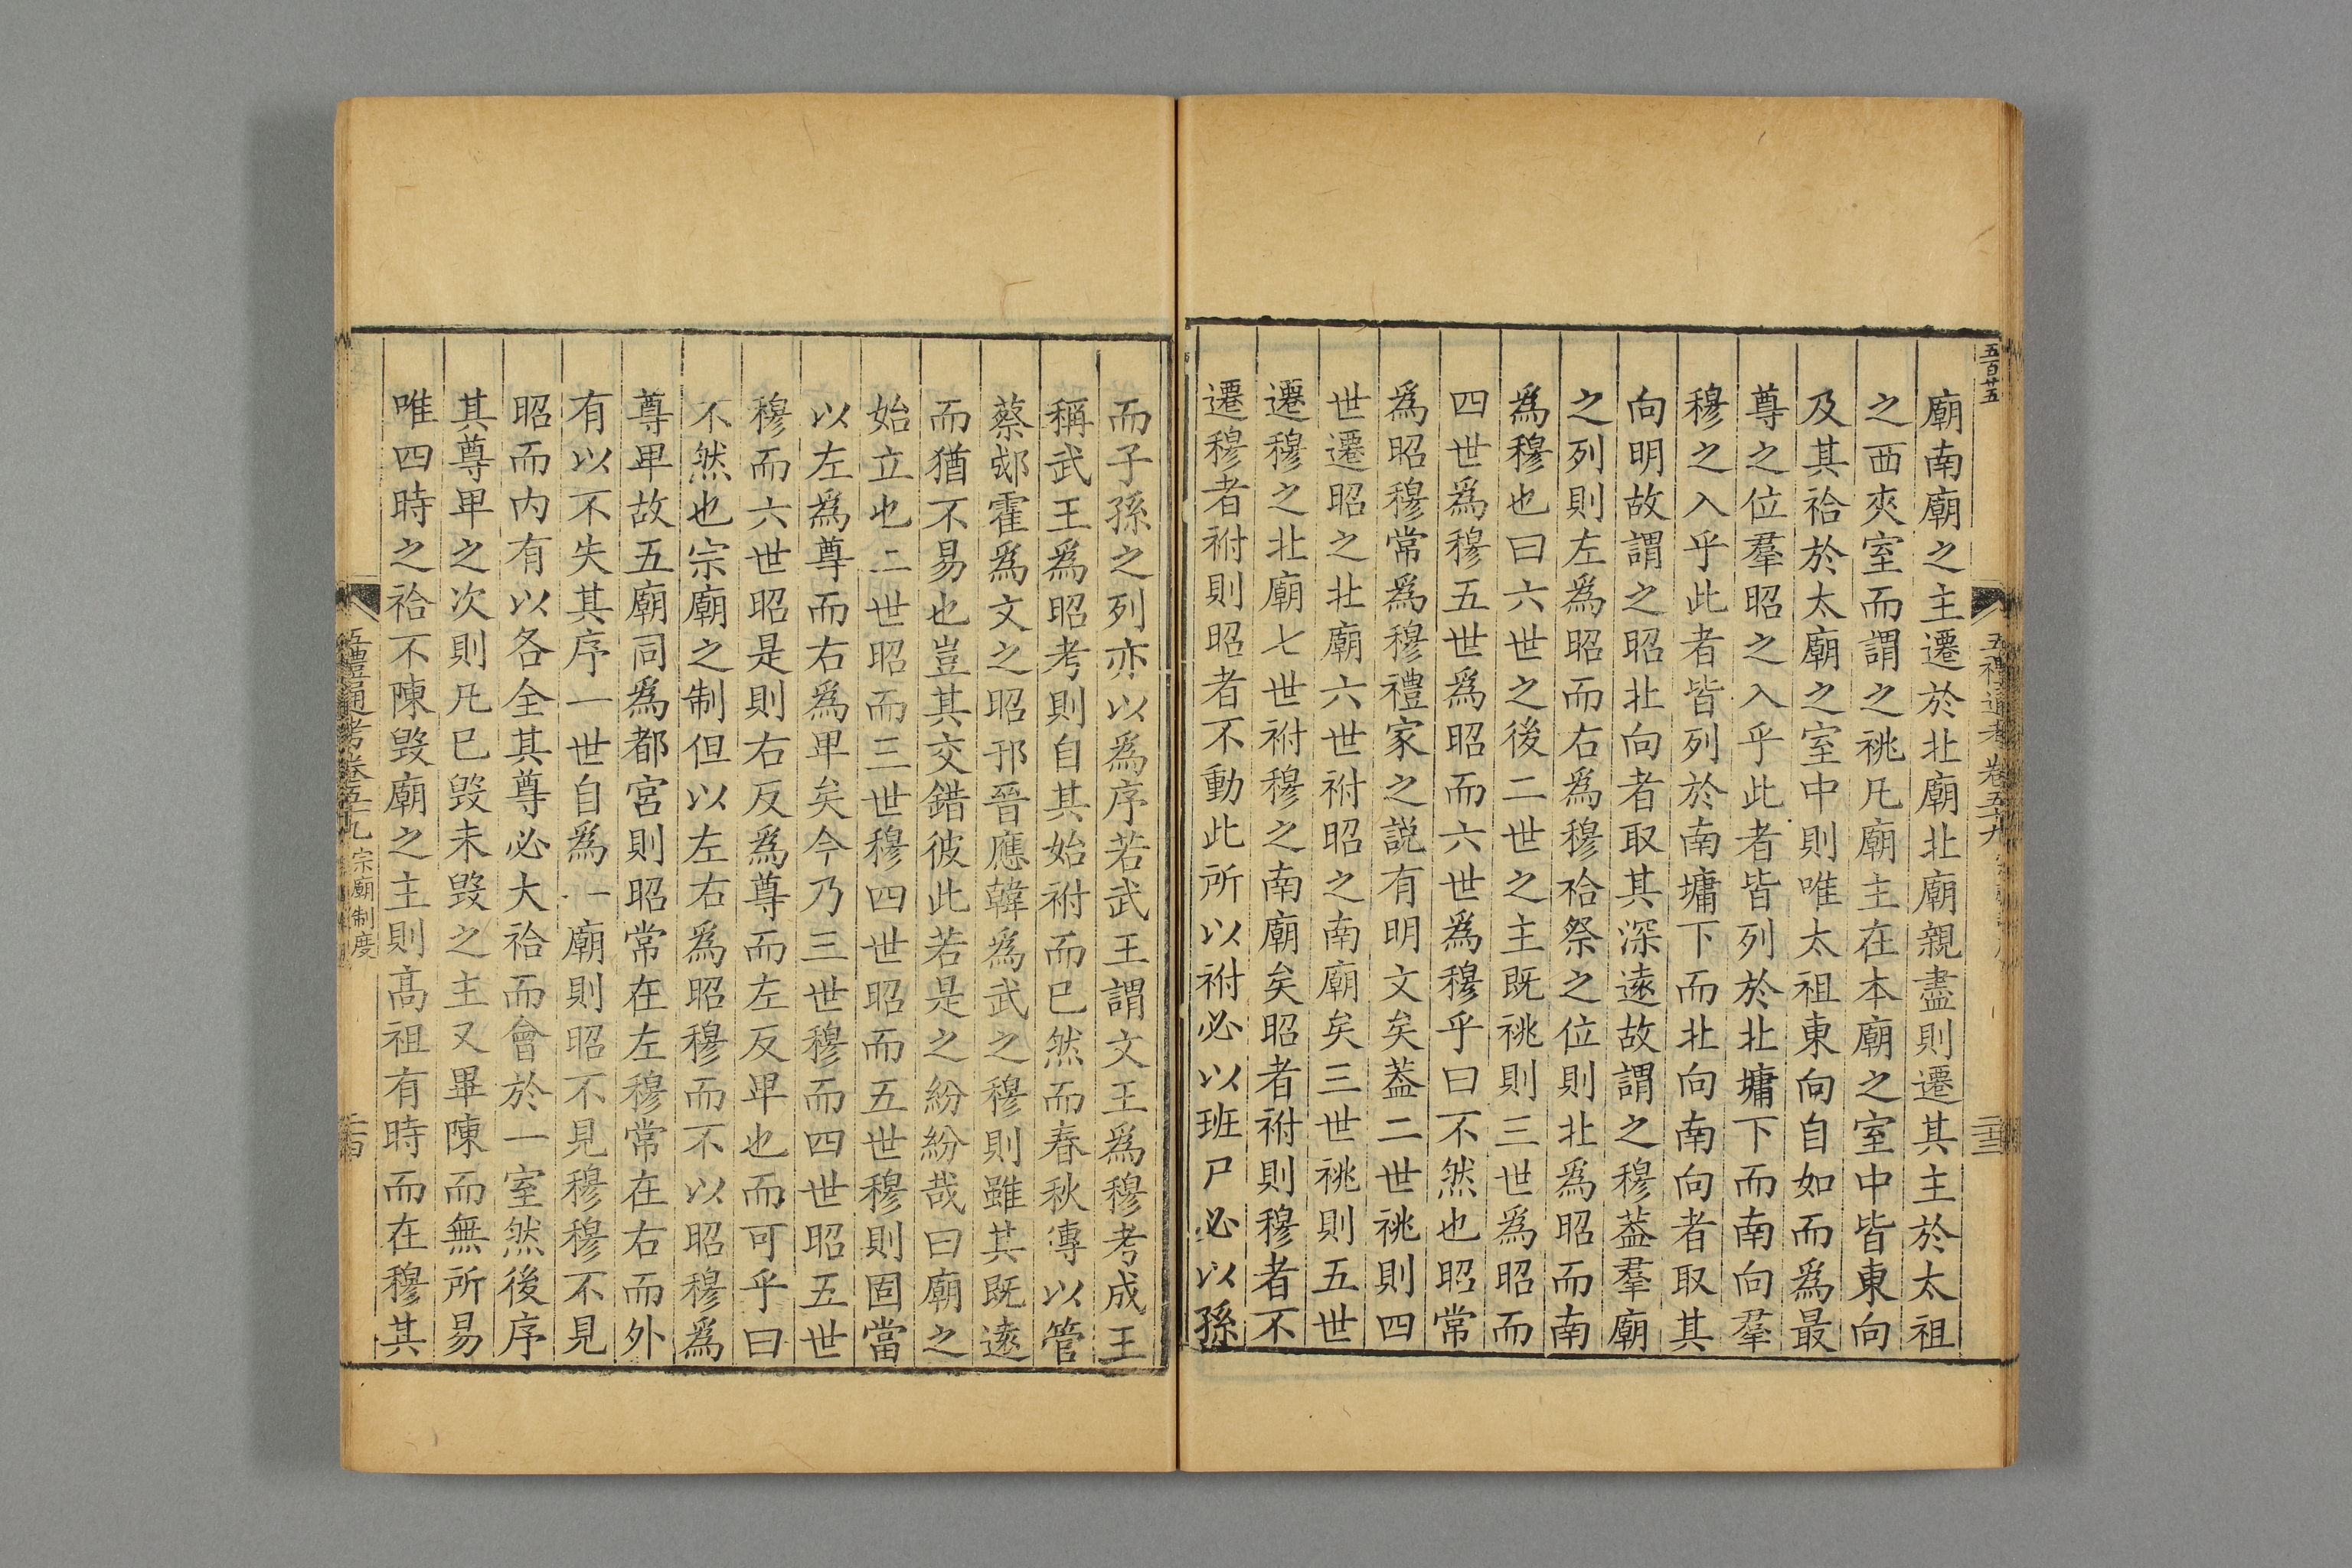 五百廿五
五禮通考卷五十九
二十三
廟南廟之主遷於北廟北廟親盡則遷其主於太祖
之西夾室而謂之祧凡廟主在本廟之室中皆東向
及其祫於太廟之室中則唯太祖東向自如而爲最
尊之位羣昭之入乎此者皆列於北墉下而南向羣
穆之入乎此者皆列於南墉下而北向南向者取其
向明故謂之昭北向者取其深遠故謂之穆葢羣廟
之列則左爲昭而右爲穆祫祭之位則北爲昭而南
爲穆也曰六世之後二世之主既祧則三世爲昭而
四世爲穆五世爲昭而六世爲穆乎曰不然也昭常
爲昭穆常爲穆禮家之説有明文矣葢二世祧則四
世遷昭之北廟六世祔昭之南廟矣三世祧則五世
遷穆之北廟七世祔穆之南廟矣昭者祔則穆者不
遷穆者祔則昭者不動此所以祔必以班尸必以孫
而子孫之列亦以爲序若武王謂文王爲穆考成王
稱武王爲昭考則自其始祔而已然而春秋傳以管
蔡郕霍爲文之昭邗晉應韓爲武之穆則雖其既遠
而猶不易也豈其交錯彼此若是之紛紛哉曰廟之
始立也二世昭而三世穆四世昭而五世穆則固當
以左爲尊而右爲卑矣今乃三世穆而四世昭五世
穆而六世昭是則右反爲尊而左反卑也而可乎曰
不然也宗廟之制但以左右爲昭穆而不以昭穆爲
尊卑故五廟同爲都宮則昭常在左穆常在右而外
有以不失其序一世自爲一廟則昭不見穆穆不見
昭而内有以各全其尊必大祫而會於一室然後序
其尊卑之次則凡已毀未毀之主又畢陳而無所易
唯四時之祫不陳毀廟之主則高祖有時而在穆其
五禮通考卷五十九 宗廟制度
二十四